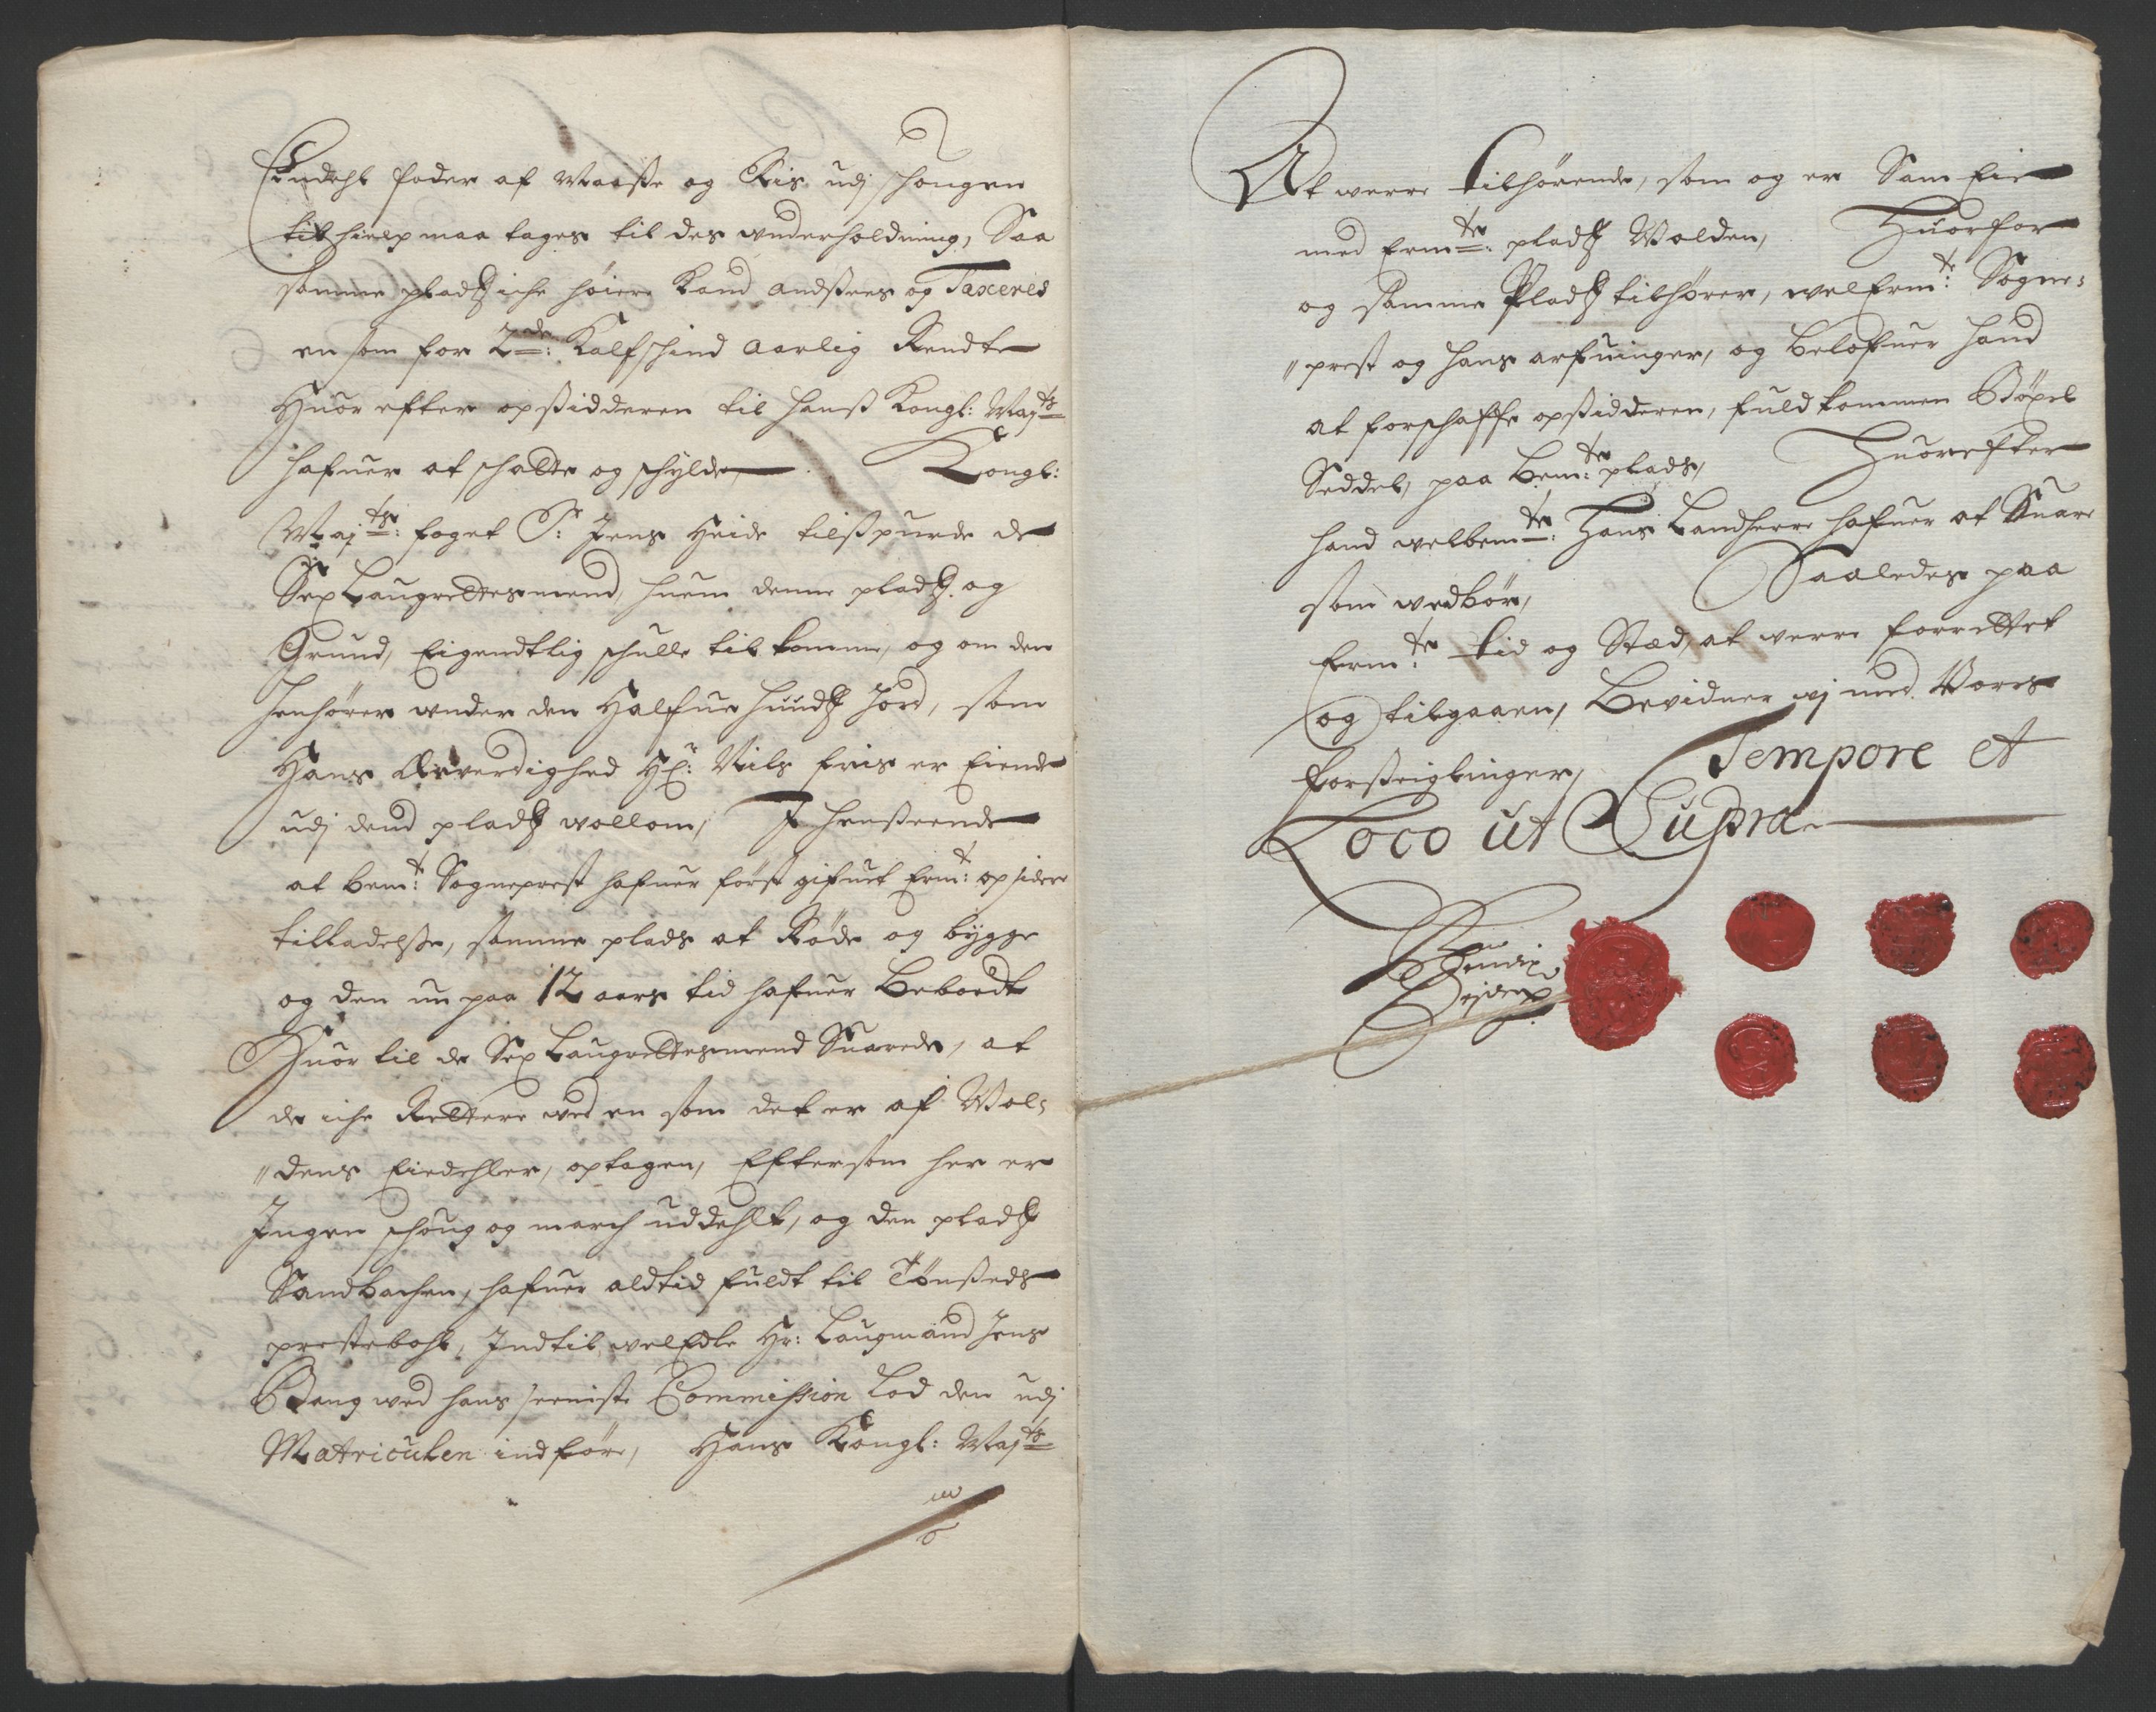 Eendehl foder af Maasse og Riis udj schougen
til hielp maa tages til des underholdning, Saa
samme pladtz iche høiere kand andsees og Taxeres
en som for 2de: Kalfschind aarlig Rendte
Huor efter opsidderen til hans Kongl: Majts
hafuer at schatte og schylde, Kongl:
Majts: foget Sr: Jens Heide tilspurde de
Sex Laugrettesmend, huem denne pladtz og
Grund, Eigendtlig schulle til komme, og om den
henhører under den Halfue huudtz Jord, som
Hans Ærverdighed Hr: Nils friis er Eiende
udj dend pladtz vollom, I henseende
at bemt: Sogneprest hafuer først gifuet Ermt: opsidere
tilladelse, samme plads at Røde og bygge
og den nu paa 12 aars tid hafuer Beboedt
Huor til de Sex Laugrettesmend Suarede, at
de iche Rettere ved en som det er af Vol=
"dens Eiedehler, optagen, Eftersom her er
Ingen schoug og march uddehlt, og den pladtz
Sandbachen, hafuer aldtid fuldt til Tønseds
prestebohl, Indtil velEdle Hr: Laugmand Jens
Bang ved hans seeniste Commission lod den udj
Matriculen indføre, Hans Kongl: Majts
At verre tilhørende, som og er Sam Eie
med Ermte: pladtz Volden, Huorfor
og samme Pladtz tilhører, velErmt: Sogne=
"prest og hans arfuinger, og belofuer hand
at forschaffe opsidderen, fuldkommen Böxel
Seddel, paa bemte: plads, Huorefter
hand velbemte: Hans Landherre hafuer at Suare
som vedbør, Saaledes paa
Ermte tid og Stæd, at verre forrettet
og tilgaaen, Bevidner vj med Vores
forseiglinger, Tempore et
Loco ut Supra